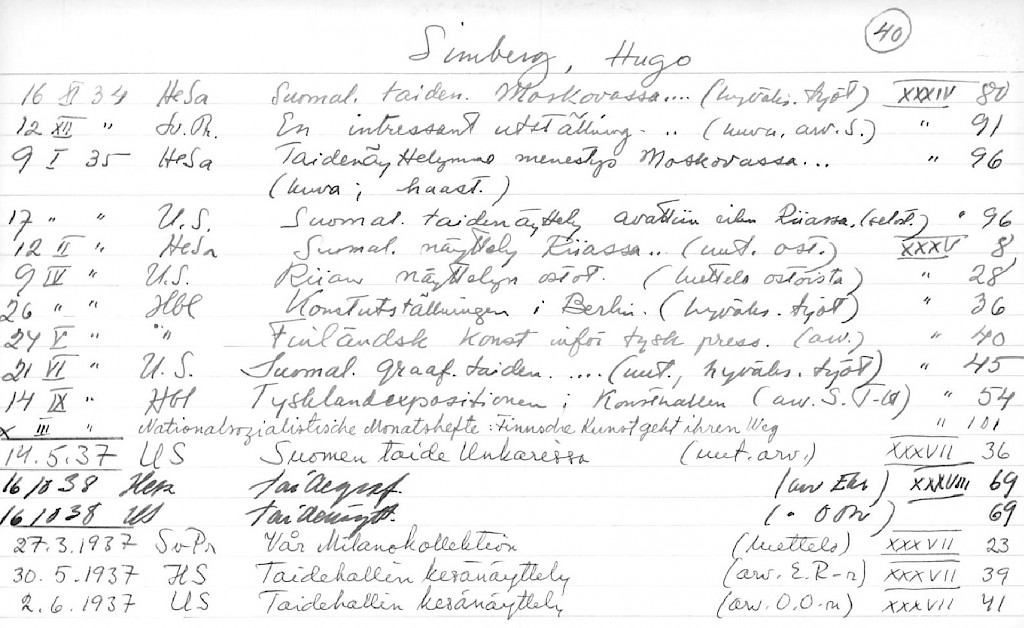 40
Simberg, Hugo
16 XI 34 HeSa Suomal. taiden. Moskovassa.... (hyväks. työt) XXXIV 80
12 XII " Sv.Pr. En intressant utställning... (kuva, arv. S.) " 91
9 I 35 HeSa Taidenäyttelymme menestys Moskovassa... " 96
(kuva; haast.)
17 " " U.S. Suomal. taidenäyttely avattiin eilen Riiassa. (selost.) " 96
12 II " HeSa Suomal. näyttely Riiassa... (uut. ost.) XXXV 8
9 IV " U.S. Riian näyttelyn ostot. (luettelo ostoista) " 28
26 " " Hbl Konstutställningen i Berlin. (hyväks. työt) " 36
24 V " " Finländsk konst inför tysk press. (arv.) " 40
21 VI " U.S. Suomal. graaf. taiden. .... (uut., hyväks. työt) " 45
14 IX " Hbl Tysklandexpositionen i Konsthallen (arv. S. T-) " 54
x III " Nationalsozialistische Monatshefte: Finnische Kunst geht ihren Weg " 101
14.5.37 US Suomen taide Unkarissa (uut. arv.) XXXVII 36
16/10 38 Hesa taidegraf. (arv ) XXXVIII 69
16/10 38 US taidenäytt. (" ) 69
27.3.1937 SvPr Vår Milanokollektion (luettelo) XXXVII 23
30.5.1937 HS Taidehallin kesänäyttely (arv. E.R-r) XXXVII 39
2.6.1937 US Taidehallin kesänäyttely (arv. O.O-n) XXXVII 41